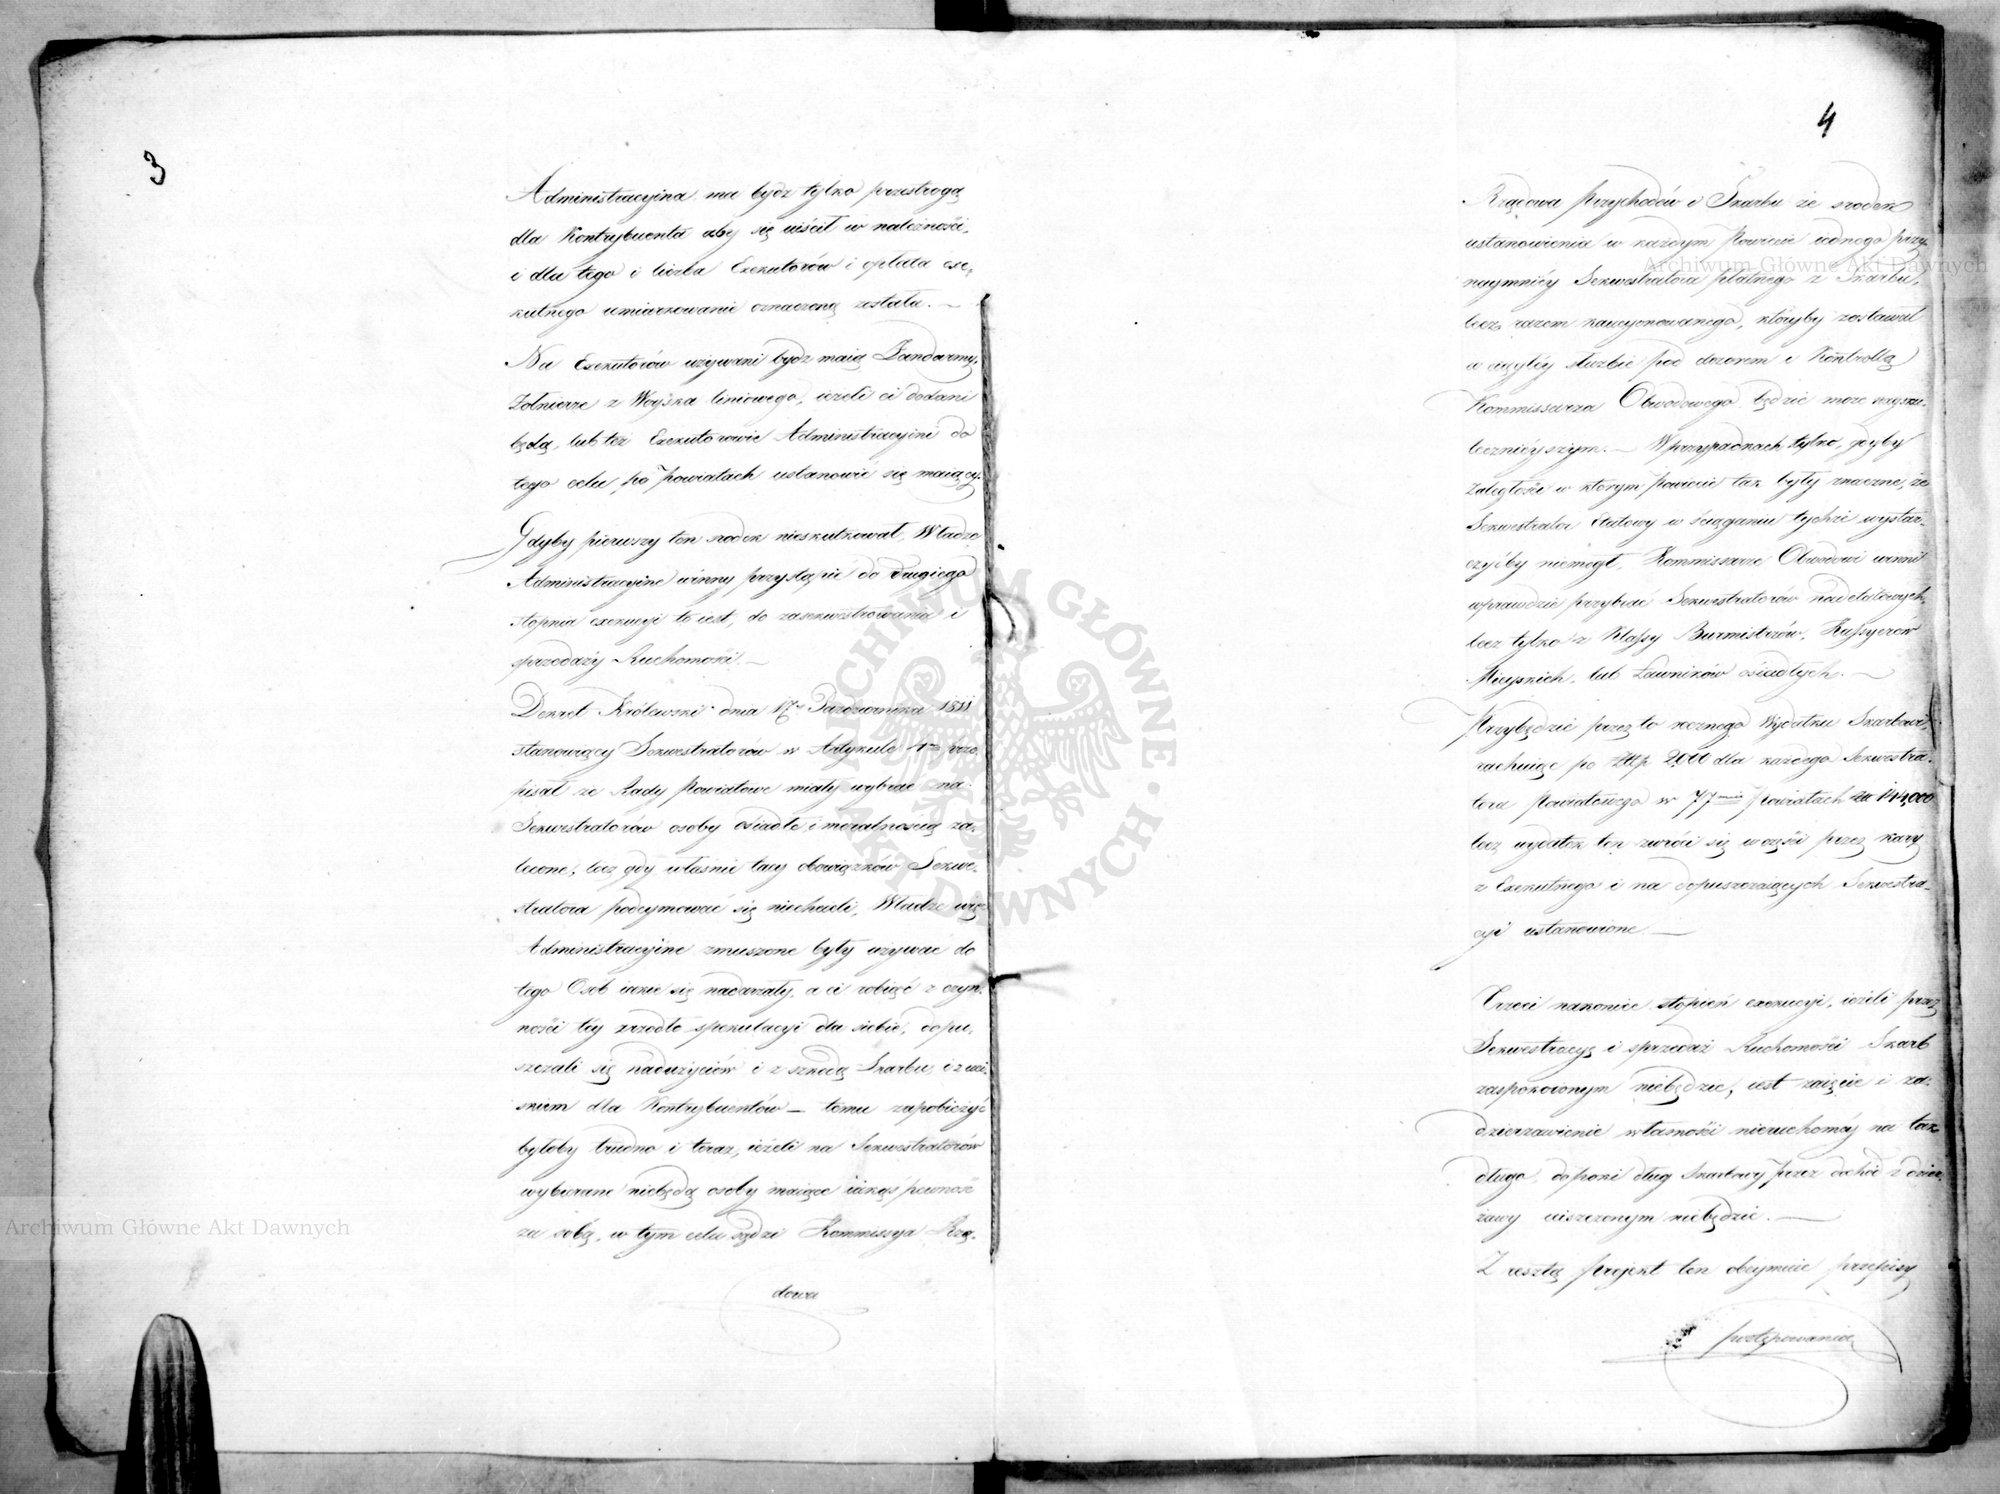 3
Administracyina ma bydz tylko przestrogą
dla Kontrybuenta aby się uiścił w należności,
i dla tego i liczba Exekutorów i opłata exe-
kutnego umiarkowanie oznaczoną została. —
Na Exekutorów używani bydz maią Żandarmy,
Żołnierze z Woyska liniowego, ieżeli ci dodani
będą, lub też Exekutorowie Administracyini do
tego celu po Powiatach ustanowić się maiący.
Gdyby pierwszy ten srodek nieskutkował, Władze
Administracyine winny przystąpić do drugiego
stopnia exekucyi to iest, do zasekwestrowania i
sprzedaży Ruchomości. —
Dekret Królewski dnia 17 Października 1811
stanowiący Sekwestratorów w Artykule 1 prze-
pisał że Rady Powiatowe miały wybrać na
Sekwestratorów osoby osiadłe i moralnością za-
lecone, lecz gdy właśnie tacy obowiązków Sekwe-
stratora podeymować się niechcieli, Władze więc
Administracyine zmuszone były używać do
tego Osób iakie się nadarzały, a ci robiąc z czyn-
ności téy zrzodło spekulacyi dla siebie, dopu-
szczali się nadużyciów i z szkodą Skarbu, i z uci-
skiem dla Kontrybuentów — temu zapobieżyć
byłoby trudno i teraz, ieżeli na Sekwestratorów
wybierane niebędą osoby maiące iakąś pewność
za sobą, w tym celu sądzi Kommissya Rzą-
dowa
4
Rządowa Przychodów i Skarbu że srodek
ustanowienia w każdym Powiecie iednego przy-
naymniéy Sekwestratora płatnego z Skarbu,
lecz razem kaucyonowanego, któryby zostawał
w ciągłéy służbie pod dozorem i Kontrollą
Kommissarza Obwodowego będzie może naysku-
tecznieyszym. — W przypadkach tylko, gdyby
Zaległości w którym Powiecie tak były znaczne, że
Sekwestrator Etatowy w ściąganiu tychże wystar-
czyćby niemógł, Kommissarze Obwodowi winni
wprawdzie przybrać Sekwestratorów nadetatowych,
lecz tylko z Klassy Burmistrzów, Kassyerów
Mieyskich, lub Ławników osiadłych. —
Przybędzie przez to rocznego Wydatku Skarbowi,
rachuiąc po Złłp 2,000 dla każdego Sekwestra-
tora Powiatowego w 77 Powiatach Złł 144,000
lecz wydatek ten zwróci się w części przez kary
z Exekutnego i na dopuszczaiących Sekwestra-
cyi ustanowione. —
Trzeci nakoniec stopień exekucyi, ieżeli przez
Sekwestracyę i sprzedaż Ruchomości Skarb
zaspokoionym niebędzie, iest zaięcie i za-
dzierżawienie własności nieruchoméy na tak
długo, dopóki dług Skarbowy przez dochód z dzier-
żawy uiszczonym niebędzie. —
Z resztą projekt ten obeymuie przepisy
postępowania
Archiwum Główne Akt Dawnych
Archiwum Główne Akt Dawnych
ARCHIWUM GŁÓWNE AKT DAWNYCH